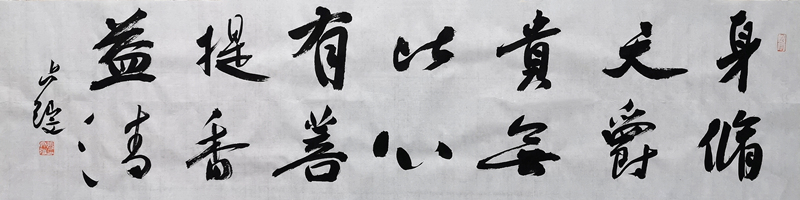 身脩
天爵
貴無
比心
有善
提香
益清